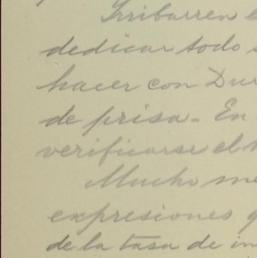 Irribarren
dedicar todo
hacer con Dur
de prisa. En
verificarse el
Mucho me
expresiones
de la tasa de in